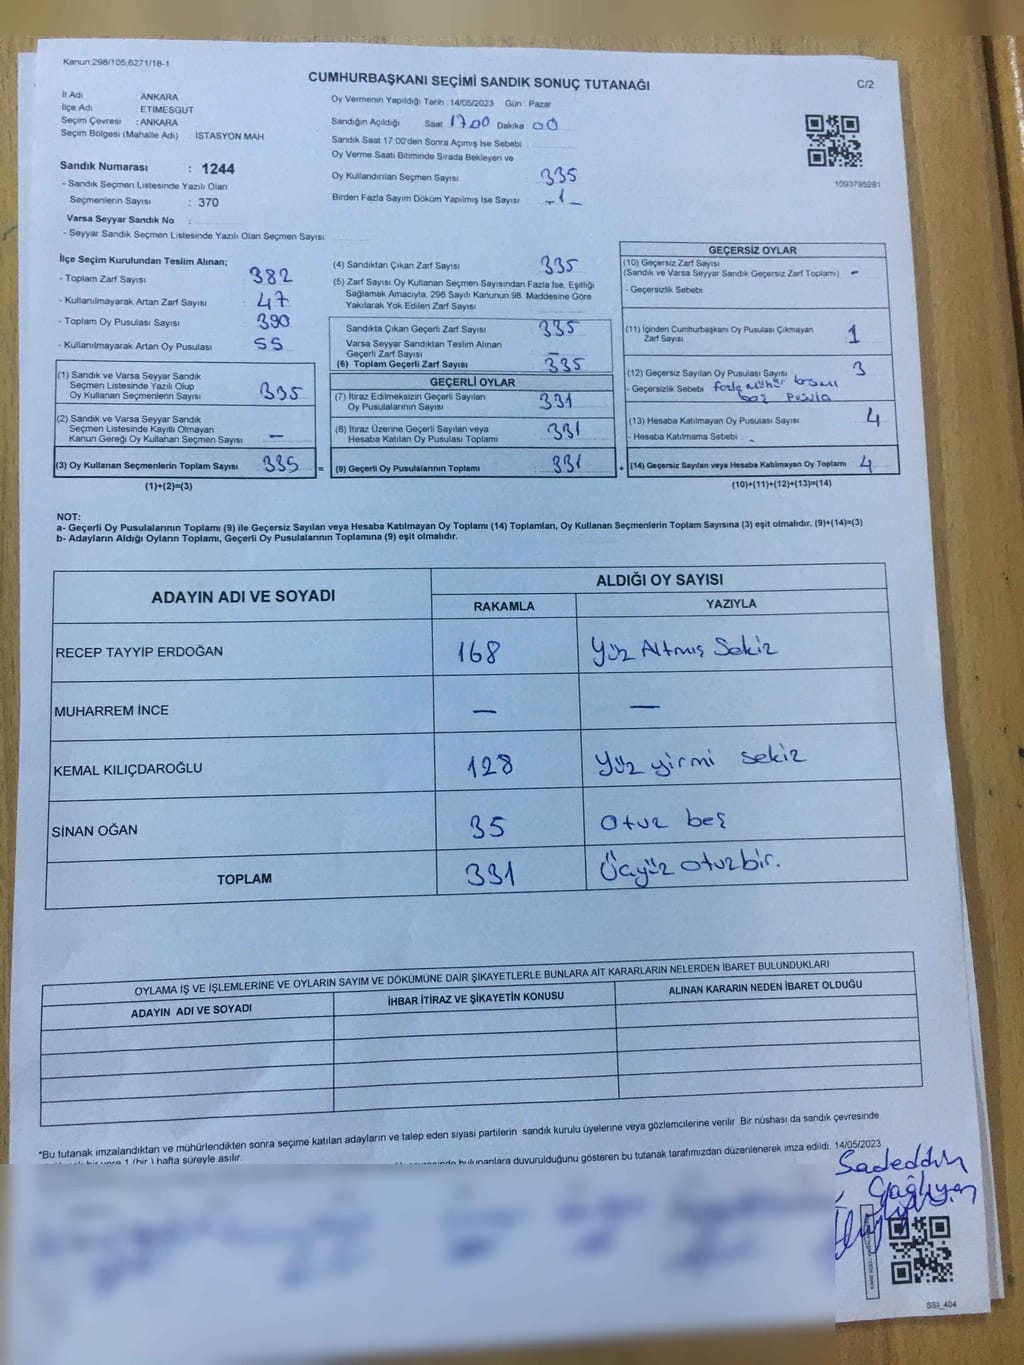 Kanun:298/105;6271/18-1
CUMHURBAŞKANI SEÇİMİ SANDIK SONUÇ TUTANAĞI
C/2
İl Adı ANKARA
İlçe Adı ETİMESGUT
Seçim Çevresi : ANKARA
Seçim Bölgesi (Mahalle Adı) : İSTASYON MAH
Sandık Numarası : 1244
- Sandık Seçmen Listesinde Yazılı Olan
Seçmenlerin Sayısı : 370
Varsa Seyyar Sandık No :
- Seyyar Sandık Seçmen Listesinde Yazılı Olan Seçmen Sayısı:
Oy Vermenin Yapıldığı Tarih : 14/05/2023 Gün : Pazar
Sandığın Açıldığı Saat 17.00 Dakika 00
Sandık Saat 17:00'den Sonra Açımış İse Sebebi
Oy Verme Saati Bitiminde Sırada Bekleyen ve
Oy Kullandırılan Seçmen Sayısı 335
Birden Fazla Sayım Döküm Yapılmış İse Sayısı -1-
1093795281
İlçe Seçim Kurulundan Teslim Alınan;
- Toplam Zarf Sayısı : 382
- Kullanılmayarak Artan Zarf Sayısı : 47
- Toplam Oy Pusulası Sayısı : 390
- Kullanılmayarak Artan Oy Pusulası : 55
(1) Sandık ve Varsa Seyyar Sandık
Seçmen Listesinde Yazılı Olup
Oy Kullanan Seçmenlerin Sayısı : 335
(2) Sandık ve Varsa Seyyar Sandık
Seçmen Listesinde Kayıtlı Olmayan
Kanun Gereği Oy Kullanan Seçmen Sayısı : —
(3) Oy Kullanan Seçmenlerin Toplam Sayısı : 335 =
(1)+(2)=(3)
(4) Sandıktan Çıkan Zarf Sayısı : 335
(5) Zarf Sayısı Oy Kullanan Seçmen Sayısından Fazla İse, Eşitliği
Sağlamak Amacıyla, 298 Sayılı Kanunun 98. Maddesine Göre
Yakılarak Yok Edilen Zarf Sayısı
Sandıkta Çıkan Geçerli Zarf Sayısı : 335
Varsa Seyyar Sandıktan Teslim Alınan
Geçerli Zarf Sayısı : —
(6) Toplam Geçerli Zarf Sayısı : 335
GEÇERLİ OYLAR
(7) İtiraz Edilmeksizin Geçerli Sayılan
Oy Pusulalarının Sayısı : 331
(8) İtiraz Üzerine Geçerli Sayılan veya
Hesaba Katılan Oy Pusulası Toplamı : 331
(9) Geçerli Oy Pusulalarının Toplamı : 331 +
GEÇERSİZ OYLAR
(10) Geçersiz Zarf Sayısı
(Sandık ve Varsa Seyyar Sandık Geçersiz Zarf Toplamı) : -
- Geçersizlik Sebebi
(11) İçinden Cumhurbaşkanı Oy Pusulası Çıkmayan
Zarf Sayısı 1
(12) Geçersiz Sayılan Oy Pusulası Sayısı 3
- Geçersizlik Sebebi
boş pusula
(13) Hesaba Katılmayan Oy Pusulası Sayısı 4
- Hesaba Katılmama Sebebi : -
(14) Geçersiz Sayılan veya Hesaba Katılmayan Oy Toplamı 4
(10)+(11)+(12)+(13)=(14)
NOT:
a- Geçerli Oy Pusulalarının Toplamı (9) ile Geçersiz Sayılan veya Hesaba Katılmayan Oy Toplamı (14) Toplamları, Oy Kullanan Seçmenlerin Toplam Sayısına (3) eşit olmalıdır. (9)+(14)=(3)
b- Adayların Aldığı Oyların Toplamı, Geçerli Oy Pusulalarının Toplamına (9) eşit olmalıdır.
ADAYIN ADI VE SOYADI
ALDIĞI OY SAYISI
RAKAMLA YAZIYLA
RECEP TAYYİP ERDOĞAN 168 Yüz Altmış Sekiz
MUHARREM İNCE — —
KEMAL KILIÇDAROĞLU 128 Yüz yirmi sekiz
SİNAN OĞAN 35 Otuz beş
TOPLAM 331 Üçyüz otuzbir.
OYLAMA İŞ VE İŞLEMLERİNE VE OYLARIN SAYIM VE DÖKÜMÜNE DAİR ŞİKAYETLERLE BUNLARA AİT KARARLARIN NELERDEN İBARET BULUNDUKLARI
ADAYIN ADI VE SOYADI İHBAR İTİRAZ VE ŞİKAYETİN KONUSU ALINAN KARARIN NEDEN İBARET OLDUĞU
*Bu tutanak imzalandıktan ve mühürlendikten sonra seçime katılan adayların ve talep eden siyasi partilerin sandık kurulu üyelerine veya gözlemcilerine verilir. Bir nüshası da sandık çevresinde
bir yere 1 (bir) hafta süreyle asılır.
bulunanlara duyurulduğunu gösteren bu tutanak tarafımızdan düzenlenerek imza edildi. 14/05/2023
Sadeddin
Çağlıyan
SSI_404